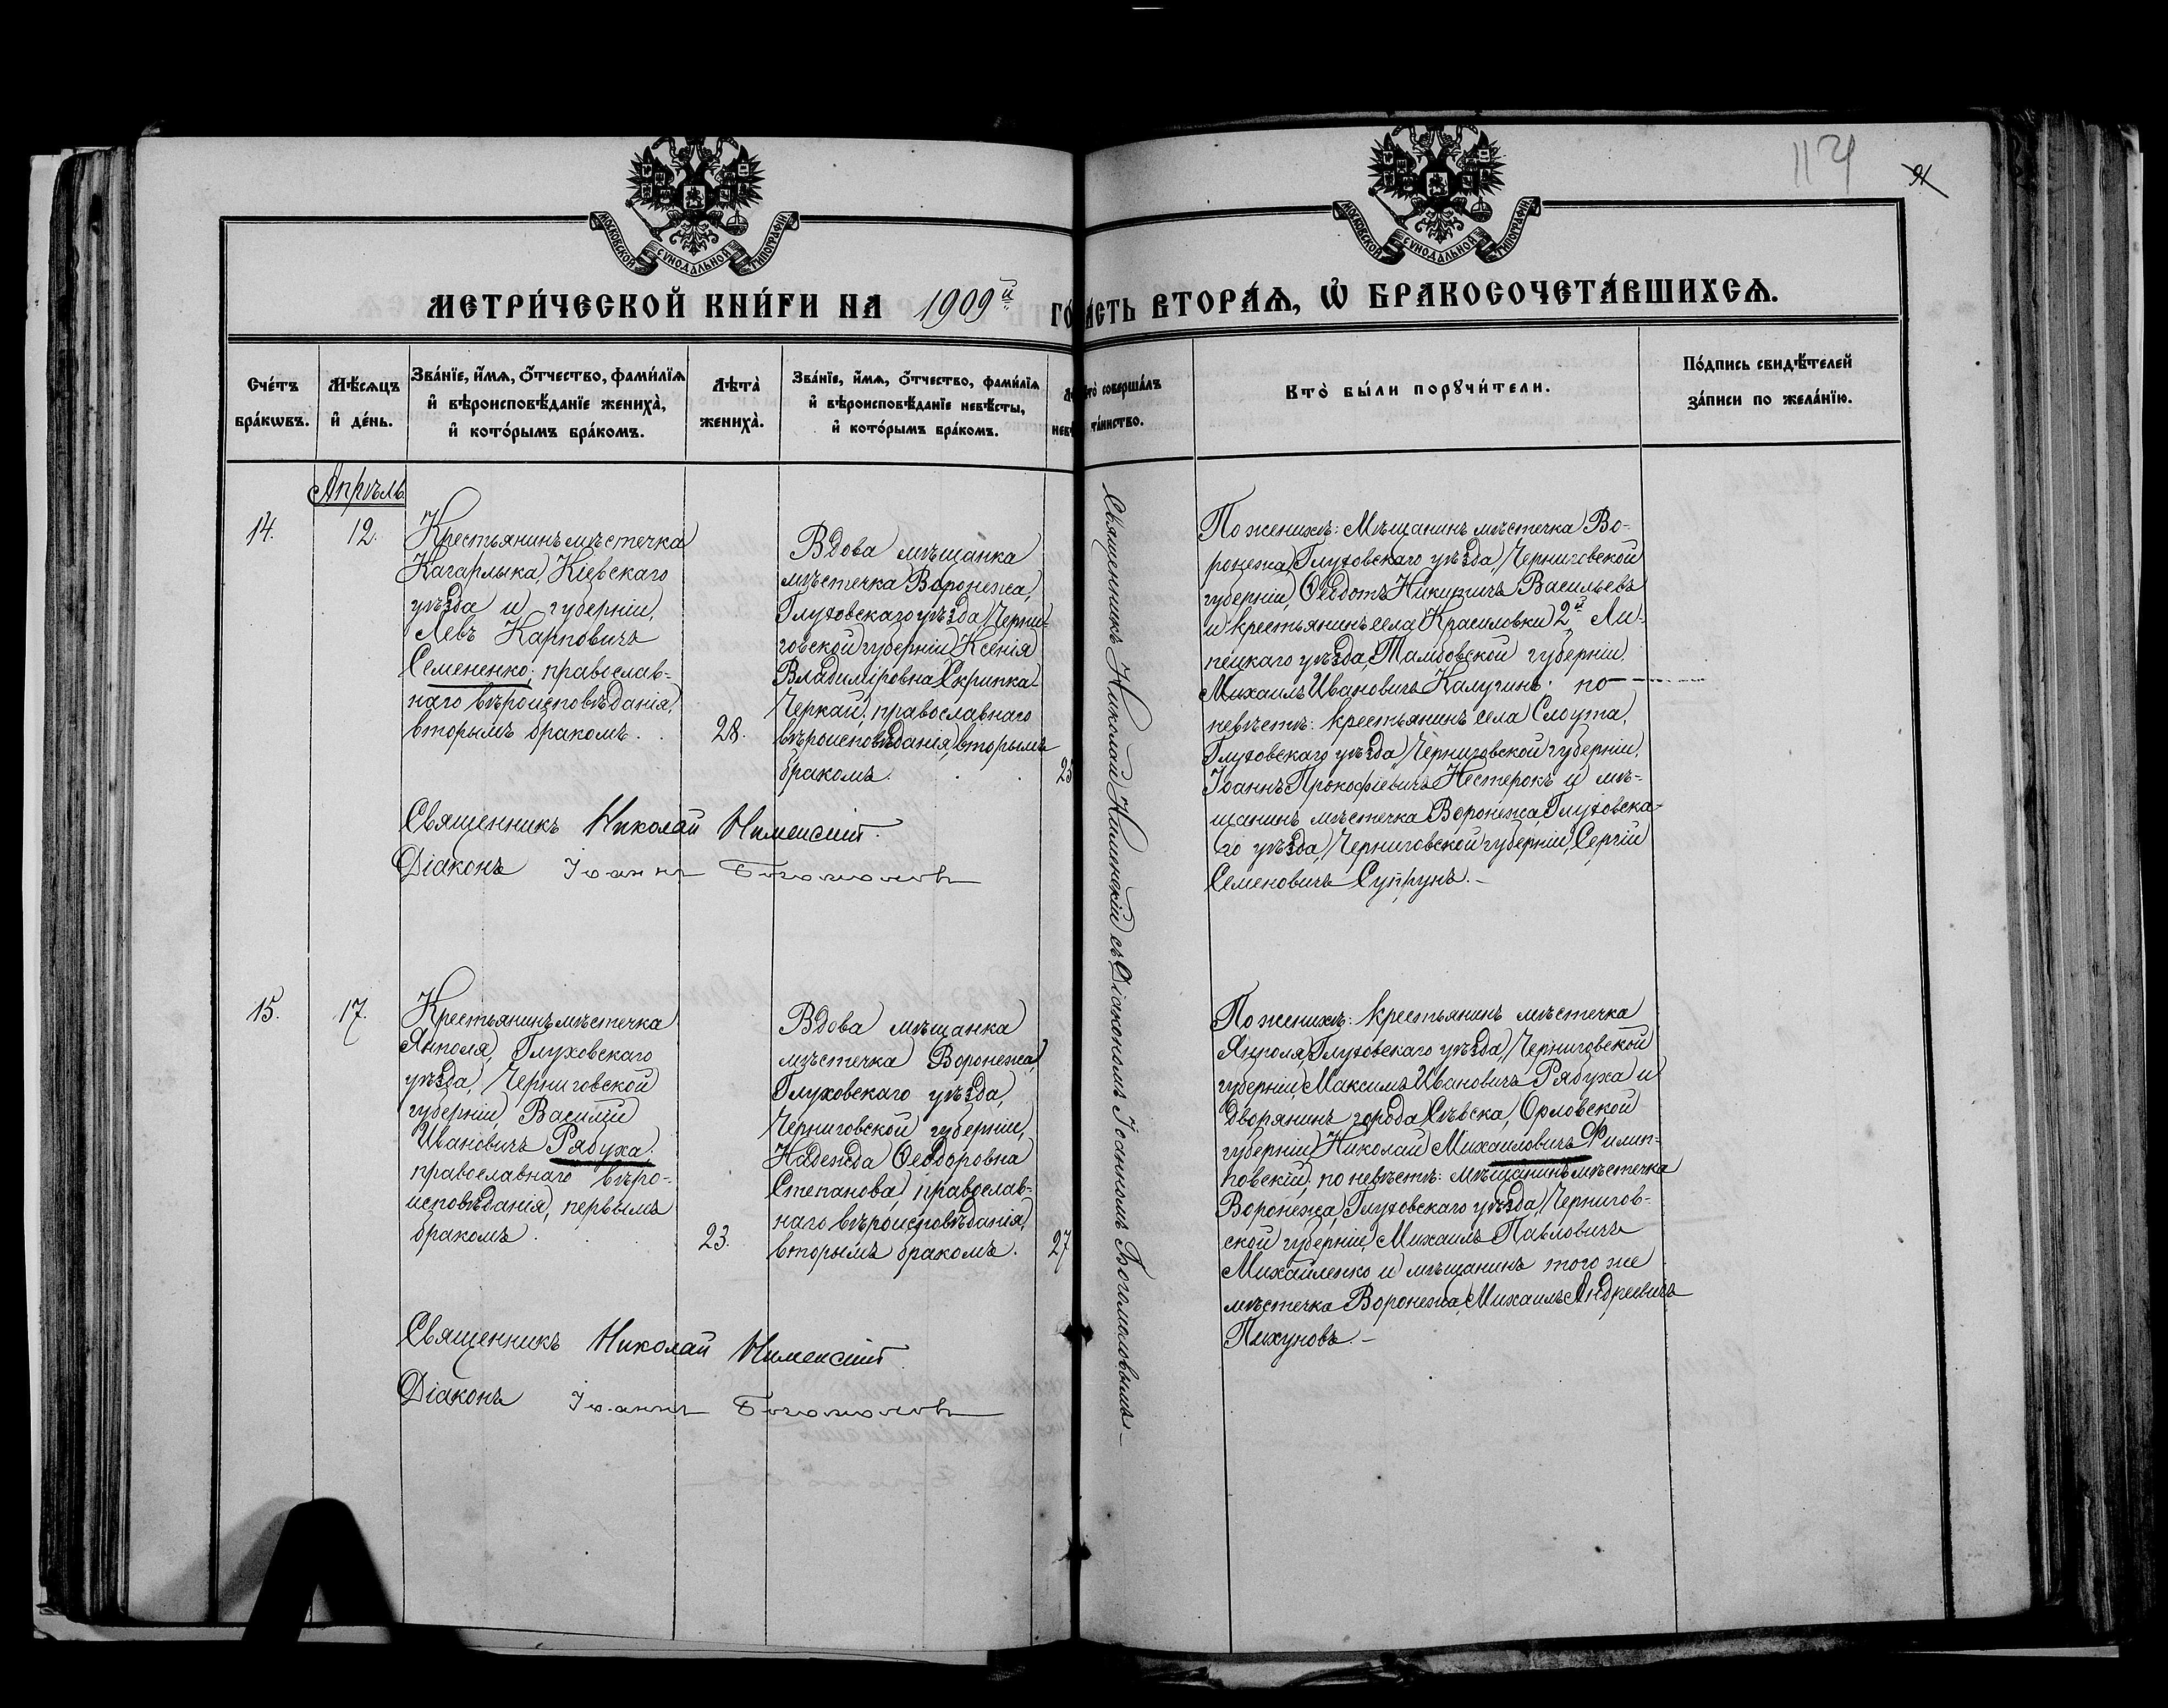 114
91
МОСКОВСКОЙ СѴНОДАЛЬНОЙ ТИПОГРАФІИ
МОСКОВСКОЙ СѴНОДАЛЬНОЙ ТИПОГРАФІИ
МЕТРИ́ЧЕСКОЙ КНИ́ГИ НА 1909й ГО
А́СТЬ ВТОРА́Ѧ, Ѡ҆ БРАКОСОЧЕТА́ВШИХСѦ.
Сче́тъ
бра́кѡвъ.
Мѣ́сѧцъ
и҆ де́нь.
Зва́нїе, и҆́мѧ, о҆́тчество, фами́лїѧ
и҆ вѣроисповѣ́данїе жениха̀,
и҆ кото́рымъ бра́комъ.
Лѣта̀
жениха̀.
Зва́нїе, и҆́мѧ, о҆́тчество, фами́лїѧ
и҆ вѣроисповѣ́данїе невѣ́сты,
и҆ кото́рымъ бра́комъ.
невѣ
то̀ соверша́лъ
та́инство.
Кто̀ бы́ли порꙋчи́тели.
По́дпись свидѣ́телей
за́писи по жела́нїю.
Апрѣль
14.
12.
Крестьянинъ мѣстечка
Кагарлыка, Кіевскаго
уѣзда и губерніи,
Левъ Карповичъ
Семененко, православ-
наго вѣроисповѣданія,
вторымъ бракомъ.
28.
Вдова мѣщанка
мѣстечка Воронежа,
Глуховскаго уѣзда, Черни-
говской губерніи Ксенія
Владиміровна Скрипка-
Черкай, православнаго
вѣроисповѣданія, вторымъ
бракомъ.
25
Священникъ Николай Нименскій
Діаконъ Іоаннъ Богомоловъ
Священникъ Николай Нименскій съ Діакономъ Іоанномъ Богомоловымъ
По женихѣ: Мѣщанинъ мѣстечка Во-
ронежа, Глуховскаго уѣзда, Черниговской
губерніи, Ѳеодотъ Никитичъ Васильевъ
и крестьянинъ села Красиловки 2й Ли-
пецкаго уѣзда, Тамбовской губерніи,
Михаилъ Ивановичъ Калугинъ. по
невѣстѣ: крестьянинъ села Слоута,
Глуховскаго уѣзда, Черниговской губерніи,
Іоаннъ Прокофіевичъ Нестерокъ и мѣ-
щанинъ мѣстечка Воронежа, Глуховска-
го уѣзда, Черниговской губерніи, Сергій
Семеновичъ Супрунъ.
15.
17.
Крестьянинъ мѣстечка
Янполя, Глуховскаго
уѣзда, Черниговской
губерніи, Василій
Ивановичъ Рябуха,
православнаго вѣро-
исповѣданія, первымъ
бракомъ.
23.
Вдова мѣщанка
мѣстечка Воронежа,
Глуховскаго уѣзда,
Черниговской губерніи,
Надежда Ѳеодоровна
Степанова, православ-
наго вѣроисповѣданія,
вторымъ бракомъ.
27
Священникъ Николай Нименскій
Діаконъ Іоаннъ Богомоловъ
По женихѣ: крестьянинъ мѣстечка
Янполя, Глуховскаго уѣзда, Черниговской
губерніи, Максимъ Ивановичъ Рябуха и
дворянинъ города Сѣвска, Орловской
губерніи, Николай Михаиловичъ Филип-
повскій; по невѣстѣ: мѣщанинъ мѣстечка
Воронежа, Глуховскаго уѣзда, Чернигов-
ской губерніи, Михаилъ Павловичъ
Михайленко и мѣщанинъ того же
мѣстечка Воронежа, Михаилъ Андреевичъ
Пихуновъ.